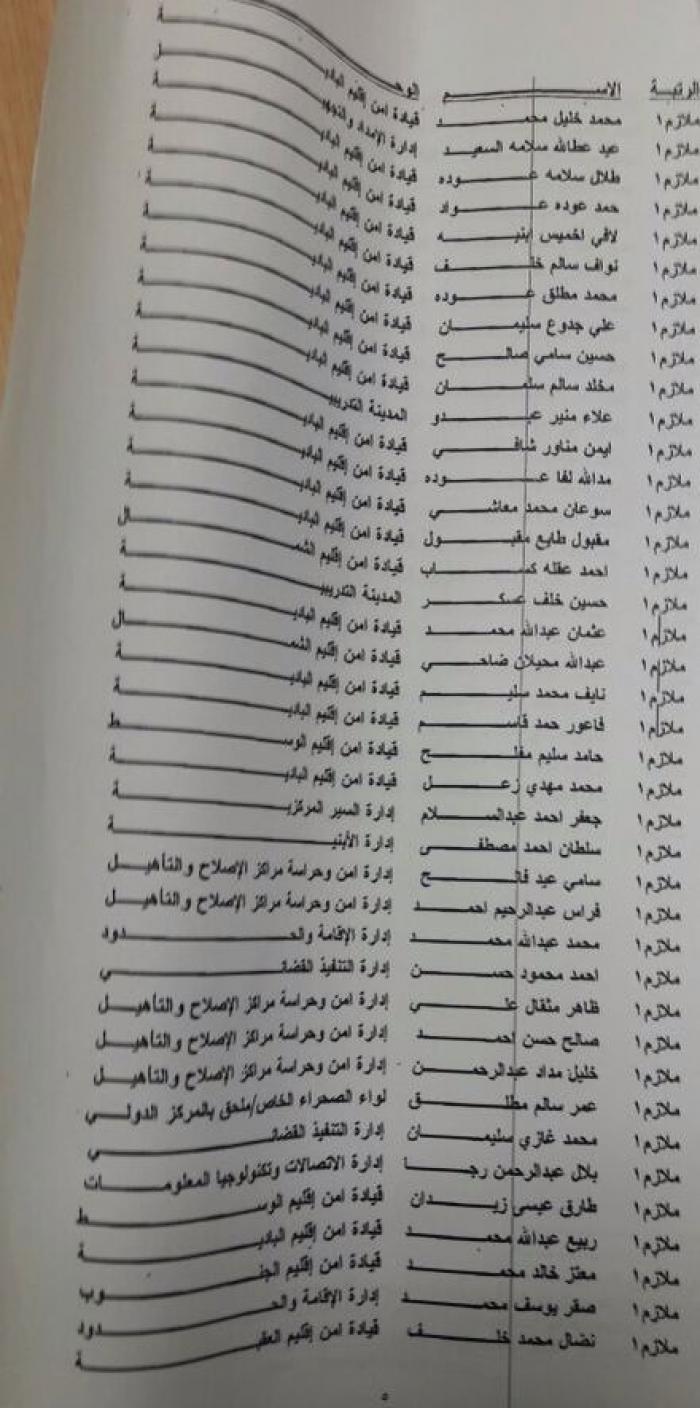 الرتبة الاســـم الوحـــدة
ملازم١ محمد خليل محمد قيادة امن إقليم البادية
ملازم١ عيد عطالله سلامه السعيد إدارة الإمداد والتجهيز
ملازم١ طلال سلامه عوده قيادة امن إقليم البادية
ملازم١ حمد عوده عواد قيادة امن إقليم البادية
ملازم١ لافي اخميس ابنيه قيادة امن إقليم البادية
ملازم١ نواف سالم خلف قيادة امن إقليم البادية
ملازم١ محمد مطلق عوده قيادة امن إقليم البادية
ملازم١ علي جدوع سليمان قيادة امن إقليم البادية
ملازم١ حسين سامي صالح قيادة امن إقليم البادية
ملازم١ مخلد سالم سلمان قيادة امن إقليم البادية
ملازم١ علاء منير عبدو المدينة التدريبية
ملازم١ ايمن مناور شافي قيادة امن إقليم البادية
ملازم١ مدالله لفا عوده قيادة امن إقليم البادية
ملازم١ سوعان محمد معاشي قيادة امن إقليم البادية
ملازم١ مقبول طايع مقبول قيادة امن إقليم البادية
ملازم١ احمد عقله كساب قيادة امن إقليم الشمال
ملازم١ حسين خلف عسكر المدينة التدريبية
ملازم١ عثمان عبدالله محمد قيادة امن إقليم البادية
ملازم١ عبدالله محيلان ضاحي قيادة امن إقليم الشمال
ملازم١ نايف محمد سليم قيادة امن إقليم البادية
ملازم١ فاعور حمد قاسم قيادة امن إقليم البادية
ملازم١ حامد سليم مفلح قيادة امن إقليم الوسط
ملازم١ محمد مهدي زعل قيادة امن إقليم البادية
ملازم١ جعفر احمد عبدالسلام إدارة السير المركزية
ملازم١ سلطان احمد مصطفى إدارة الأبنية
ملازم١ سامي عيد فالح إدارة امن وحراسة مراكز الإصلاح والتأهيل
ملازم١ فراس عبدالرحيم احمد إدارة امن وحراسة مراكز الإصلاح والتأهيل
ملازم١ محمد عبدالله محمد إدارة الإقامة والحدود
ملازم١ احمد محمود حسن إدارة التنفيذ القضائي
ملازم١ ظاهر مثقال علي إدارة امن وحراسة مراكز الإصلاح والتأهيل
ملازم١ صالح حسن احمد إدارة امن وحراسة مراكز الإصلاح والتأهيل
ملازم١ خليل مداد عبدالرحمن إدارة امن وحراسة مراكز الإصلاح والتأهيل
ملازم١ عمر سالم مطلق لواء الصحراء الخاص/ملحق بالمركز الدولي
ملازم١ محمد غازي سليمان إدارة التنفيذ القضائي
ملازم١ بلال عبدالرحمن رجا إدارة الاتصالات وتكنولوجيا المعلومات
ملازم١ طارق عيسى زيدان قيادة امن إقليم الوسط
ملازم١ ربيع عبدالله محمد قيادة امن إقليم البادية
ملازم١ معتز خالد محمد قيادة امن إقليم الجنوب
ملازم١ صقر يوسف محمد إدارة الإقامة والحدود
ملازم١ نضال محمد خلف قيادة امن إقليم العقبة
٥